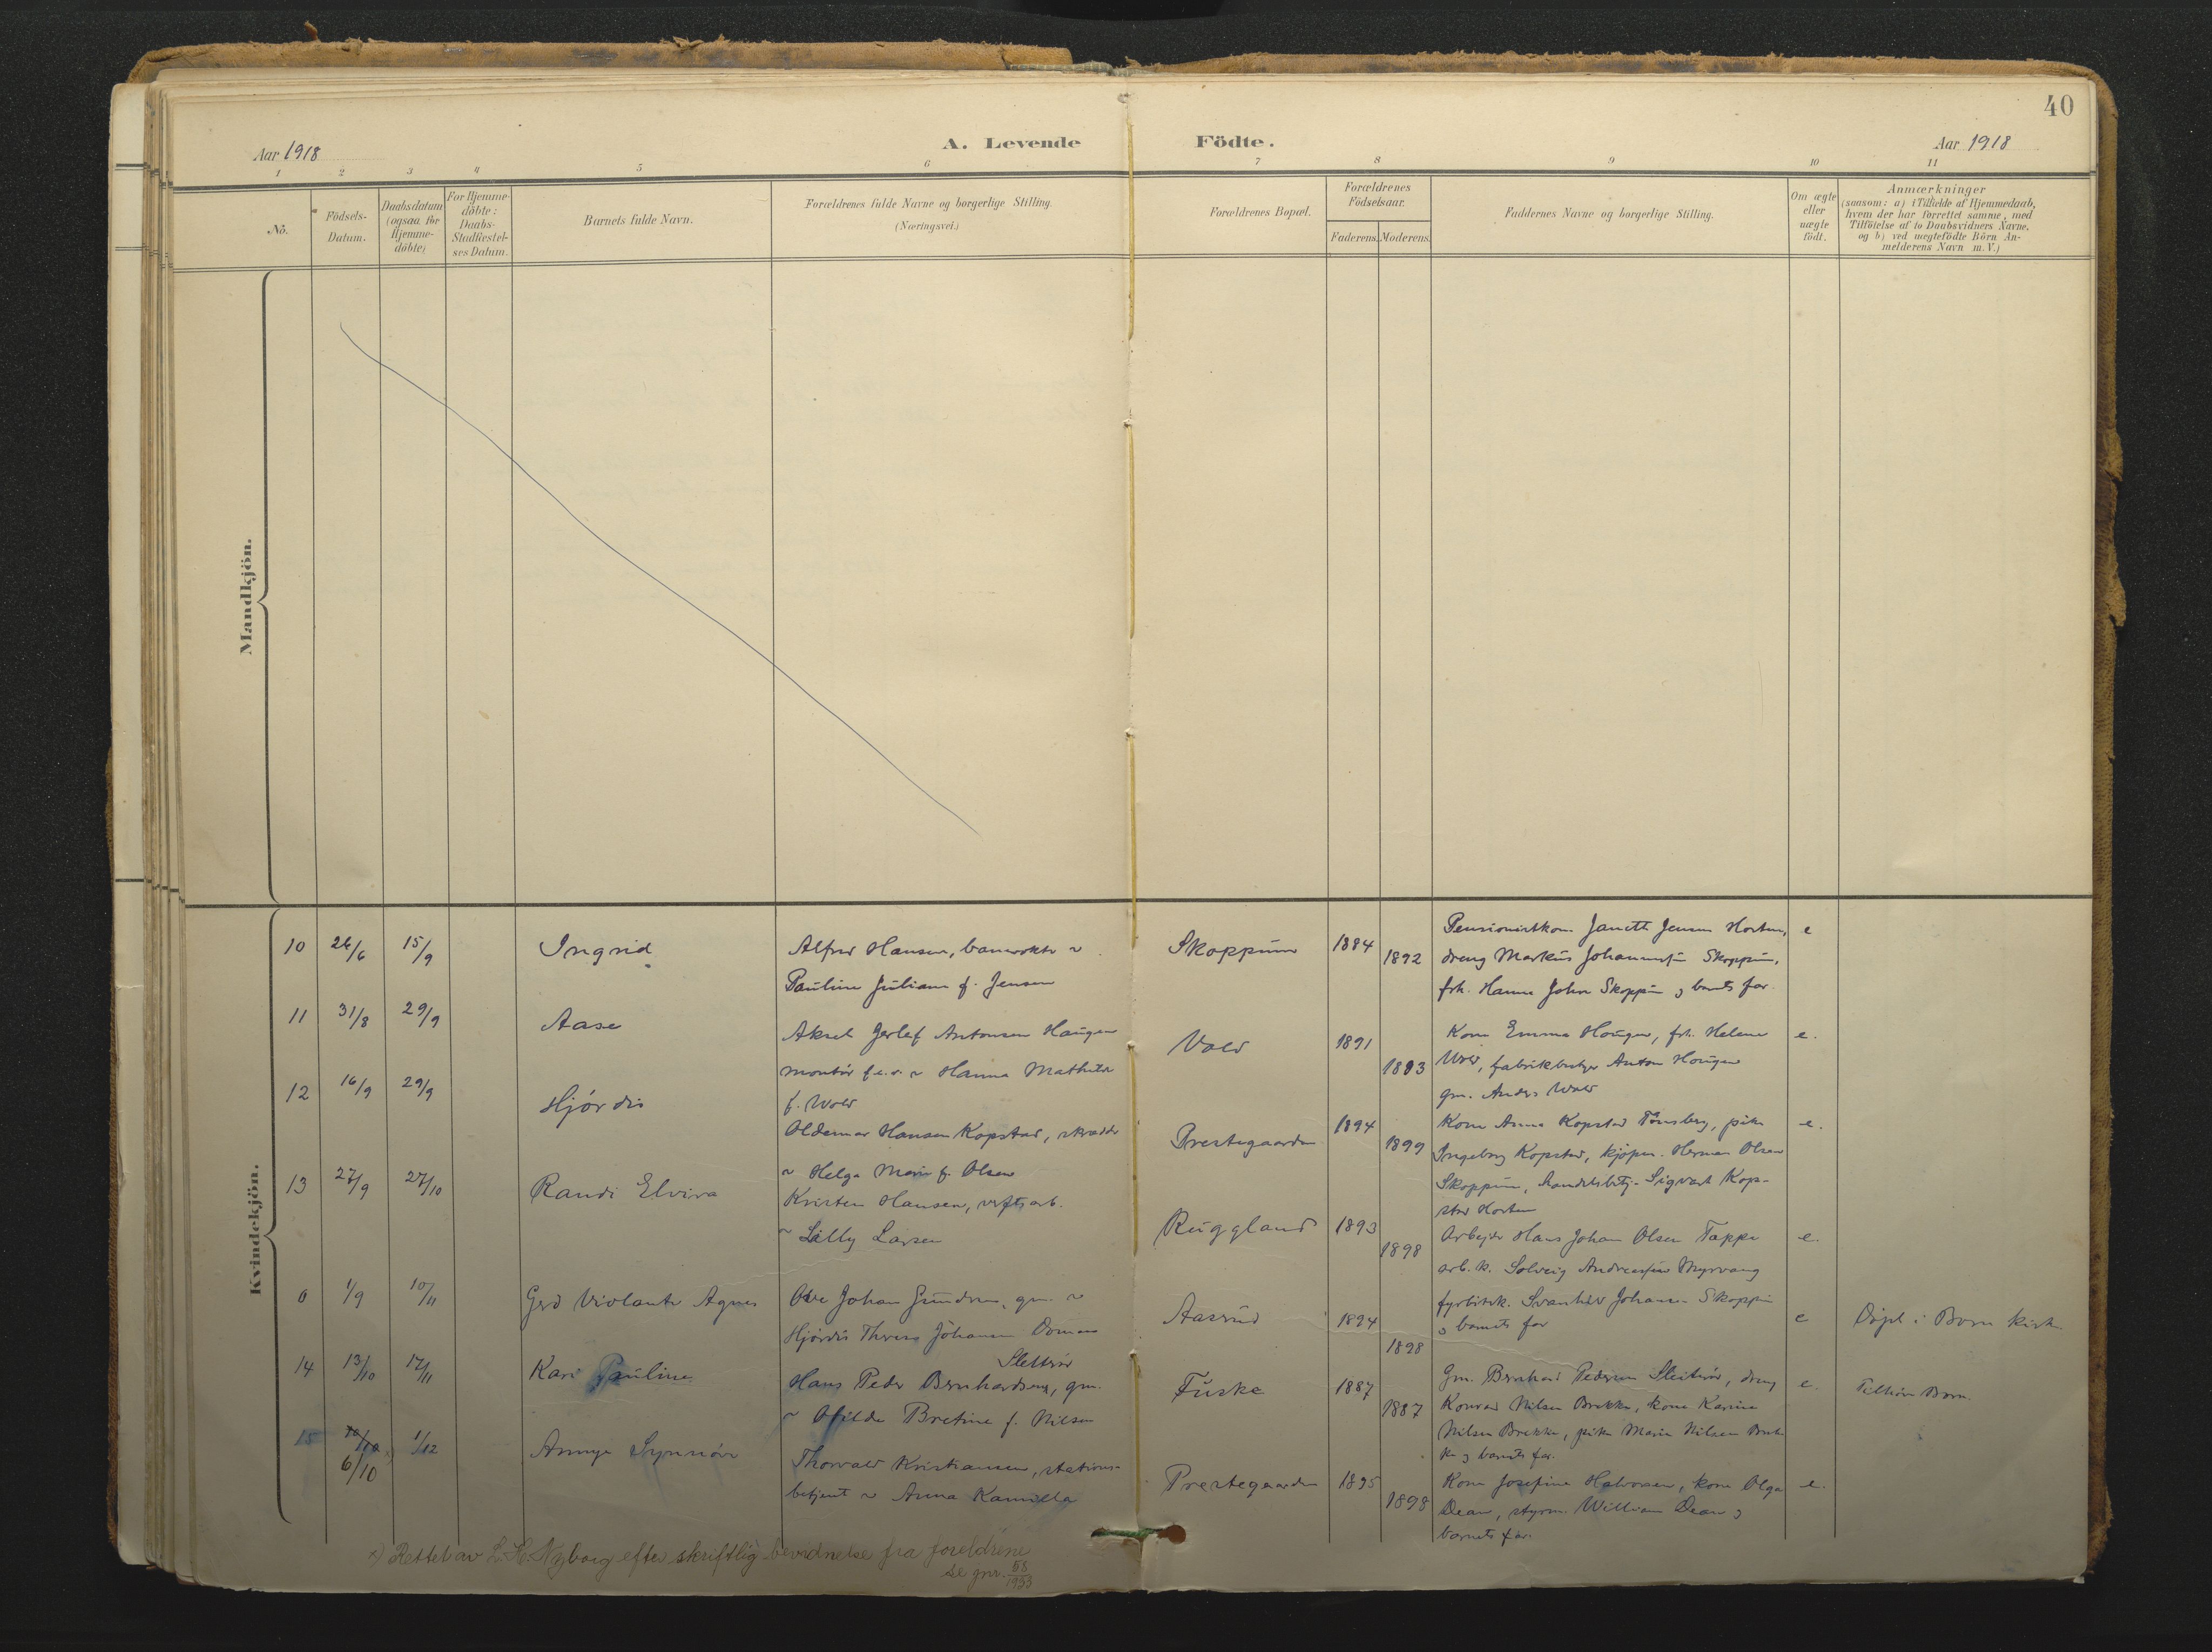 40
Aar 1918
A. Levende
Födte.
Aar 1918
1 2 3 4 5 6 7 8 9 10 11
No.
Födsels-
Datum.
Daabsdatum
(ogsaa for
Hjemme-
döbte)
For Hjemme-
döbte:
Daabs-
Stadfæstel-
ses Datum.
Barnets fulde Navn.
Forældrenes fulde Navne og borgerlige Stilling.
(Næringsvei.)
Forældrenes Bopæl.
Forældrenes
Födselsaar.
Faderens. Moderens.
Faddernes Navne og borgerlige Stilling.
Om ægte
eller
uægte
födt.
Anmærkninger
(saasom: a) i Tilfælde af Hjemmedaab,
hvem der har forrettet samme, med
Tilföielse af to Daabsvidners Navne,
og b) ved uægtefödte Börn An-
melderens Navn m. V.)
Mandkjön.
Kvindekjön.
10 26/6 15/9 Ingrid
Alfred Hansen, banevokter ~
Pauline Juliane f. Jensen
Skoppum 1884 1892
Pensionistkone Janette Jensen Horten,
dreng Markus Johannesen Skoppum,
frk. Hanna Johnsen Skoppum og barnets far.
e
11 31/8 29/9 Aase
Aksel Gerlef Antonsen Haugen
montör ~ Hanna Mathilde
f. Wold
Vold 1891 1893
Kone Emma Hougen, frk. Helene
Wold, Anton Hougen
gm. Anders Wold
e.
12 16/9 29/9 Hjördis
Oldemar Hansen Kopstad, skrædder
~ Helga Marie f. Olsen
Prestegaarden 1894 1899
Kone Anna Kopstad Tönsberg, pike
Ingeborg Kopstad, kjøpm. Herman Olsen
Skoppum, handelsbetj. Sigvart Kop-
stad Horten
e.
13 27/9 27/10 Randi Elvira
Kristen Hansen, verftsarb.
~ Lilly Larsen
Ruggland 1893 1898
Arbeider Hans Johan Olsen Tappe
arb. k. Solveig Andreassen Myrvang
fyrböterk. Svanhild Johansen Skoppum
og barnets far
e.
0 1/9 10/11 Gerd Violante Agnes
Ole Johan Gundersen, gm. ~
Hjördis Therese Johansen
Aasrud 1894 1898
e
Döpt i Borre kirke
14 13/10 17/11 Kari Pauline
Slettröd
Hans Peder Bernhardsen, gm.
~ Hilda Bretine f. Nilsen
Fuske 1887 1887
Gm. Bernhard Pedersen Sletteröd, dreng
Konrad Nilsen Brekke, kone Karine
Nilsen Brekke, pike Marie Nilsen Brek-
ke og barnets far.
e.
Tilhörer Borre.
15 10/10 x) 6/10 1/12 Annye Synnöve
Thorvald Kristiansen, stations-
betjent ~ Anna Kamilla
Prestegaarden 1895 1898
Kone Josefine Halvorsen, kone Olga
Dean, styrm. William Dean og
barnets far.
e.
x) Rettet av L. H. Nyborg efter skriftlig bevidnelse fra foreldrene
se gnr. 58/1953